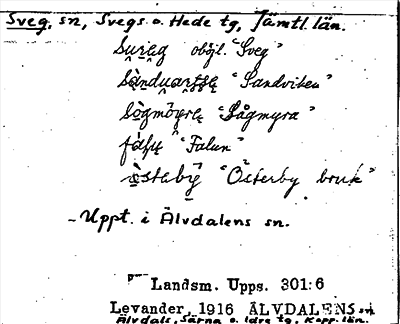 Sveg, sn, Svegs o. Hede tg, Jämtl. län.
oböjl. "Sveg"
"Sandviken"
"Sågmyra"
"Falun"
"Österby bruk"
Uppt. i Älvdalens sn.
Landsm. Upps. 301:6
Levander, 1916 ÄLVDALENS sn
Älvdals, Särna o. Idre tg, Kopp. län.